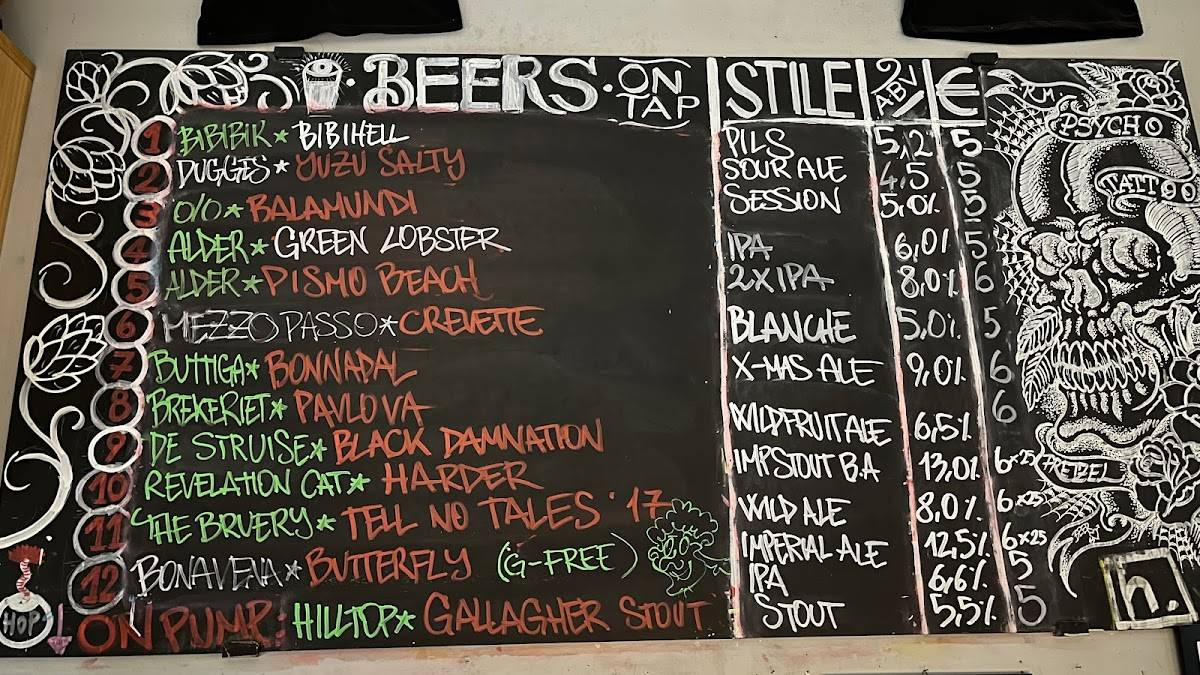 BEERS · ON TAP STILE ABV €
1 BIBIBIR * BIBIHELL PILS 5,2 5
2 DUGGES * YUZU SALTY SOUR ALE 4,5 5
3 O/O * BALAMUNDI SESSION 5,0% 5
4 ALDER * GREEN LOBSTER IPA 6,0% 5
5 ALDER * PISMO BEACH 2XIPA 8,0% 6
6 MEZZOPASSO * CREVETTE BLANCHE 5,0% 5
7 BUTTIGA * BONNADAL X-MAS ALE 9,0% 6
8 BREKERIET * PAVLOVA WILDFRUITALE 6,5% 6
9 DE STRUISE * BLACK DAMNATION IMPSTOUT B.A 13,0% 6x25
10 REVELATION CAT * HARDER WILD ALE 8,0% 6x25
11 THE BRUERY * TELL NO TALES '17 IMPERIAL ALE 12,5% 6x25
12 BONAVENA * BUTTERFLY (G-FREE) IPA 6,6% 5
ON PUMP: HILLTOP * GALLAGHER STOUT STOUT 5,5% 5
RM
PSYCHO
TATTOO
HOP
h.